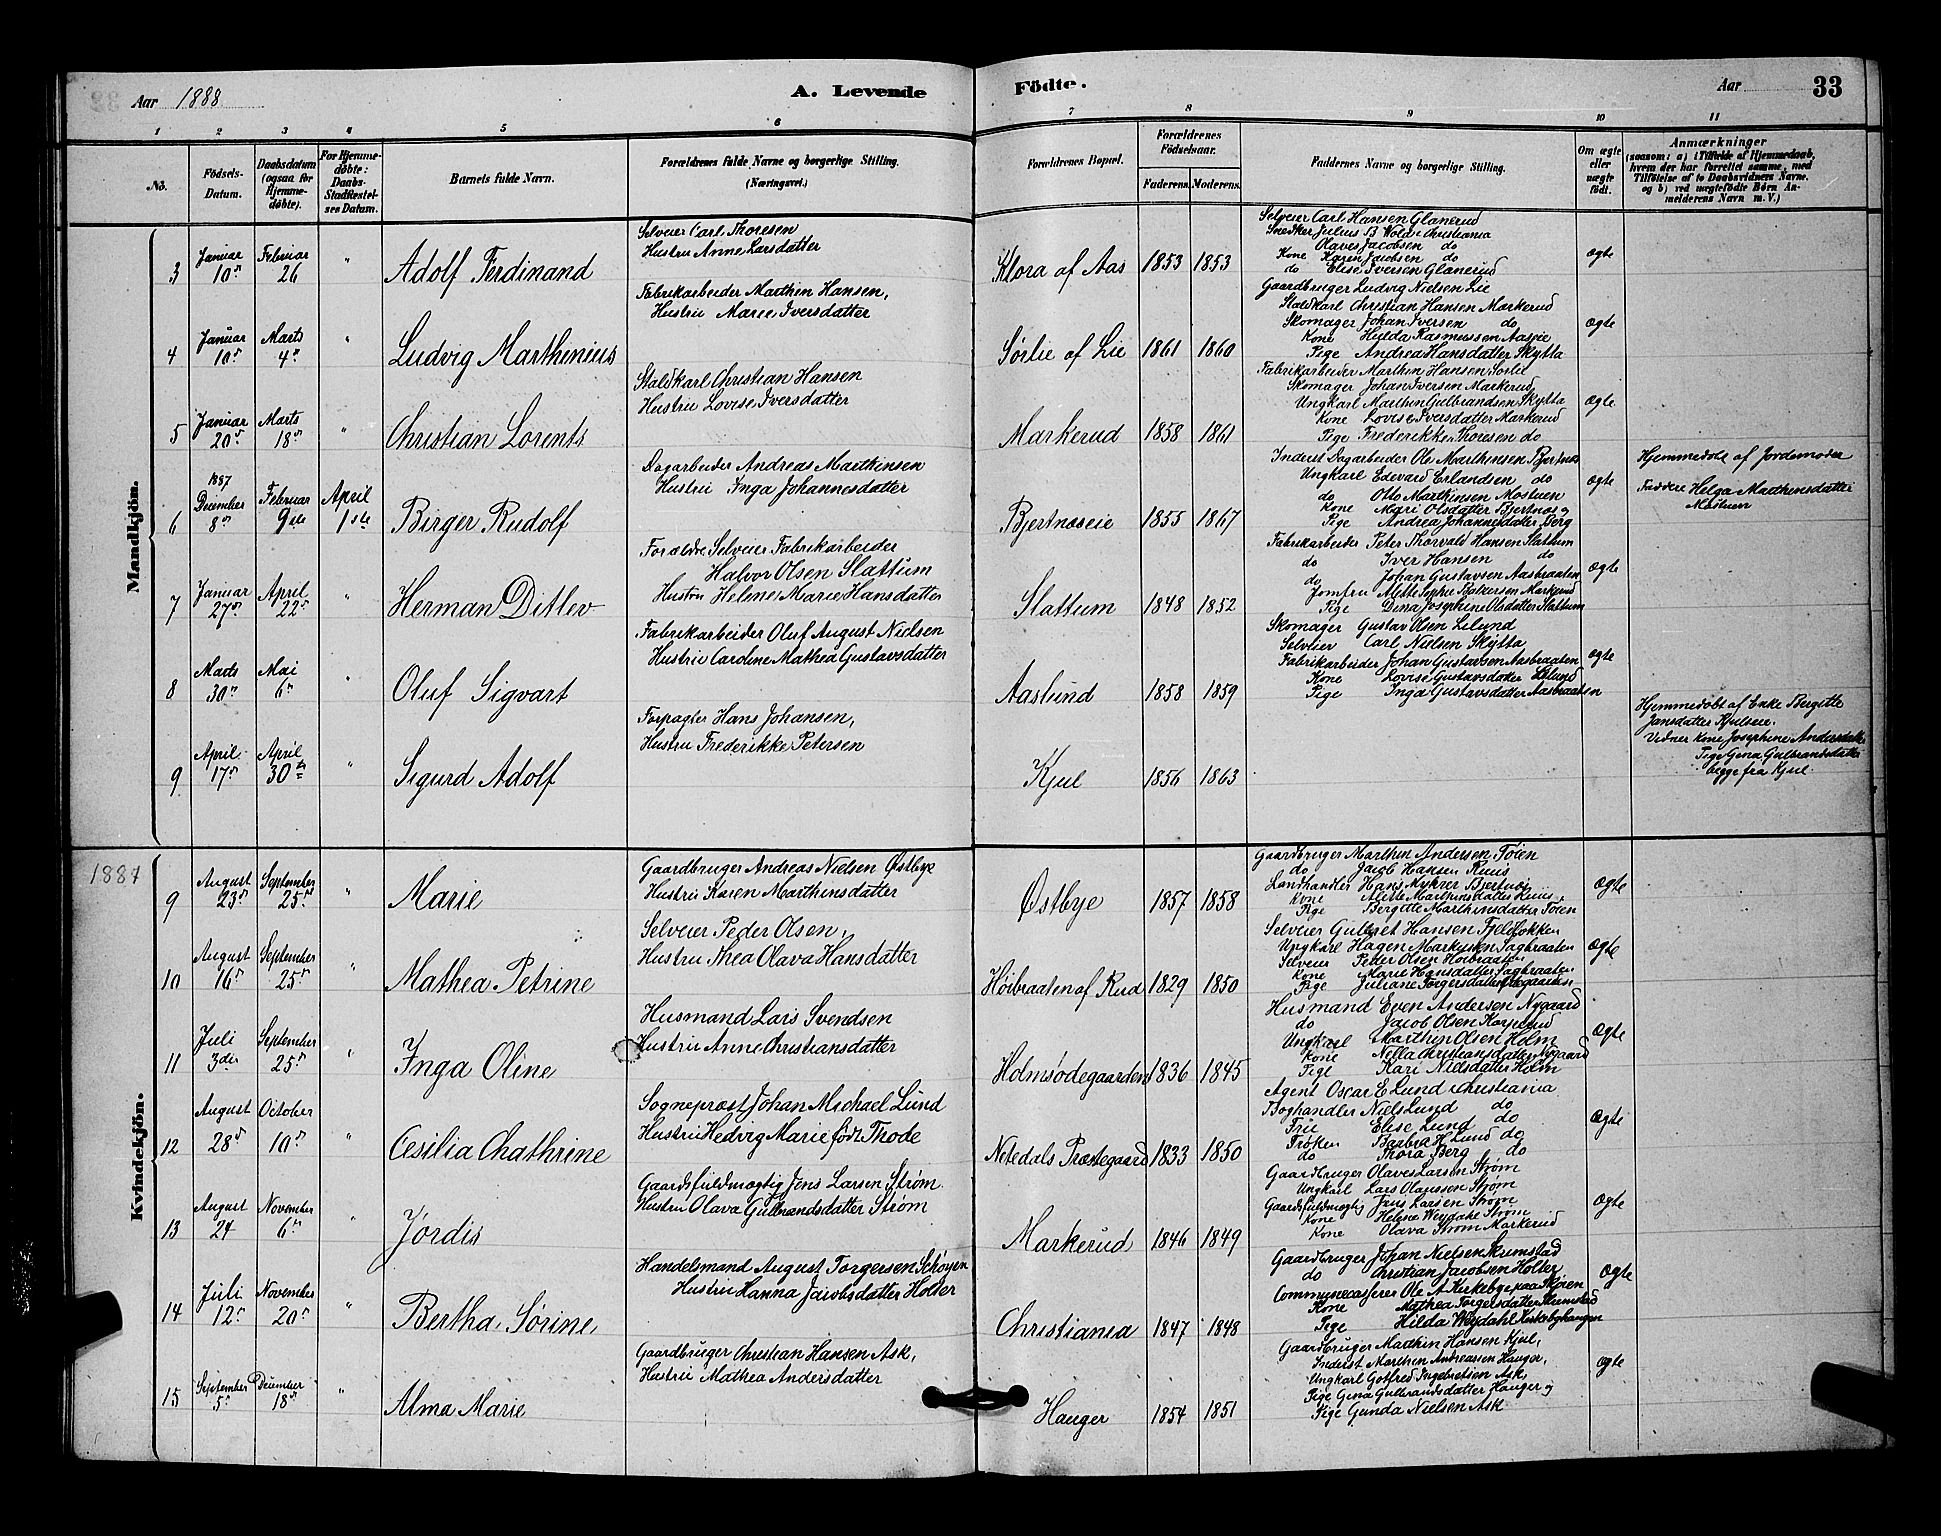 Aar 1888
A. Levende
Födte.
Aar
33
1 2 3 4 5 6 7 8 9 10 11
No.
Födsels-
Datum.
Daabsdatum
(ogsaa for
Hjemme-
döbte).
For Hjemme-
döbte:
Daabs-
Stadfæstel-
ses Datum.
Barnets fulde Navn.
Forældrenes fulde Navne og borgerlige Stilling.
(Næringsvei.)
Forældrenes Bopæl.
Forældrenes
Födselsaar.
Faderens.
Moderens.
Faddernes Navne og borgerlige Stilling.
Om ægte
eller
uægte
födt.
Anmærkninger
(saasom: a) i Tilfælde af Hjemmedaab,
hvem der har forrettet samme, med
Tilföielse af to Daabsvidners Navne.
og b) ved uægtefödte Börn An-
melderens Navn m. V.)
Mandkjön.
3
Januar
10
Februar
26
"
Adolf Ferdinand
Selveier Carl Thoresen
Hustru Anne Larsdatter
Klora af Aas
1853
1853
Selveier Carl Hansen Glanerud
Snedker Julius B Wold Christiania
Olaves Jacobsen do
Kone Karen Jacobsen do
do Elise Iversen Glanerud
ægte
4
Januar
10
Marts
4
"
Ludvig Marthinius
Fabrikarbeider Marthin Hansen,
Hustru Marie Iversdatter
Sørlie af Lie
1861
1860
Gaardbruger Ludvig Nielsen Lie
Staldkarl Christian Hansen Markerud
Skomager Johan Iversen do
Kone Hulda Rasmussen Aaseie
Pige Andrea Hansdatter Skytta
ægte
5
Januar
20
Marts
18
"
Christian Lorents
Staldkarl Christian Hansen
Hustru Lovise Iversdatter
Markerud
1858
1861
Fabrikarbeider Marthin Hansen Sørlie
Skomager Johan Iversen Markerud
Ungkarl Marthin Gulbrandsen Skytta
Kone Lovise Iversdatter Markerud
Pige Frederikke Thoresen do
ægte
6
1887
December
8
Februar
9de
April
1ste
Birger Rudolf
Dagarbeider Andreas Marthinsen
Hustru Inga Johannesdatter
Bjertnæseie
1855
1867
Inderst Dagarbeider Ole Marthinsen Bjertnæs
Ungkarl Edevard Erlandsen do
do Otto Marthinsen Mostuen
Kone Mari Olsdatter Bjertnæs og
Pige Andrea Johannesdatter Berg
ægte
Hjemmedøbt af Jordemoder
Faddere Helga Marthinsdatter
Mostuen
7
Januar
27
April
22
"
Herman Ditlev
Forældre Selveier Fabrikarbeider
Halvor Olsen Slattum
Hustru Helene Marie Hansdatter
Slattum
1848
1852
Fabrikarbeider Peter Thorvald Hansen Slattum
do Iver Hansen do
do Johan Gustavsen Aasbraaten
Jomfru Alette Sophie Balkersen Markerud
Pige Dina Josephine Olsdatter Slattum
ægte
8
Marts
30
Mai
6
"
Oluf Sigvart
Fabrikarbeider Oluf August Nielsen
Hustru Caroline Mathea Gustavsdatter
Aaslund
1858
1859
Skomager Gustav Olsen Lilund
Selveier Carl Nielsen Skytta
Fabrikarbeider Johan Gustavsen Aasbraaten
Kone Lovise Gustavsdatter Lilund
Pige Inga Gustavsdatter Aasbraaten
ægte
9
April
17
April
30te
"
Sigurd Adolf
Forpagter Hans Johansen,
Hustru Frederikke Petersen
Kjul
1856
1863
Hjemmedøbt af Enke Bergitte
Jansdatter Kjulseie.
Vidner Kone Josephine Andersdatter
Pige Gina Gulbrandsdatter
begge fra Kjul.
Kvindekjön.
1887
9
August
23
September
25
"
Marie
Gaardbruger Andreas Nielsen Østbye
Hustru Karen Marthinsdatter
Østbye
1857
1858
Gaardbruger Marthin Andersen Tøien
do Jacob Hansen Ruus
Landhandler Hans Myhrer Bjertnæs
Kone Alette Marthinsdatter Ruus
Pige Bergitte Marthinsdatter Tøien
ægte
10
August
16
September
25
"
Mathea Petrine
Selveier Peder Olsen,
Hustru Thea Olava Hansdatter
Høibraaten af Rud
1829
1850
Selveier Gulbret Hansen Fjeldløkken
Ungkarl Hagen Markusen Sagbraaten
Selveier Peder Olsen Høibraaten
Kone Marie Hansdatter Sagbraaten
Pige Juliane Torgersdatter
ægte
11
Juli
3die
September
25
"
Inga Oline
Husmand Lars Svendsen
Hustru Anne Christiansdatter
Holmsødegaarden
1836
1845
Husmand Even Andersen Nygaard
do Jacob Olsen Korperud
Ungkarl Marthin Olsen Holm
Kone Nella Christiansdatter Nygaard
Pige Kari Nielsdatter Holm
ægte
12
August
28
October
10
"
Cesilia Chathrine
Sogneprest Johan Michael Lund
Hustru Hedvig Marie født Thode
Nitedals Præstegaard
1833
1850
Agent Oscar E Lund Christiania
Boghandler Niels Lund do
Frue Elise Lund do
Frøken Barbra H Lund do
do Thora Berg do
ægte
13
August
24
November
6
"
Jordis
Gaardsfuldmægtig Jens Larsen Strøm.
Hustru Olava Gulbrandsdatter Strøm
Markerud
1846
1849
Gaardbruger Olaves Larsen Strøm
Ungkarl Lars Olaussen Strøm
Gaardsfuldmægtig Jens Larsen Strøm
Kone Helene Weydahl Strøm
Kone Olava Strøm Markerud
ægte
14
Juli
12
November
20
"
Bertha Sørine
Handelsmand August Torgersen Schøyen
Hustru Hanna Jacobsdatter Holter
Christiania
1847
1848
Gaardbruger Johan Nielsen Skumstad
do Christian Jacobsen Holter
Communecasserer Ole A Kirkeby paa Skøien
Kone Mathea Torgersdatter Skumstad
Pige Hilda Weydahl Kirkebyhaugen
ægte
15
September
5
December
18
"
Alma Marie
Gaardbruger Christian Hansen Ask,
Hustru Mathea Andersdatter
Hauger
1854
1851
Gaardbruger Marthin Hansen Kjul,
Inderst Marthin Andreassen Hauger,
Ungkarl Gotfred Ingebretsen Ask,
Pige Gina Gulbrandsdatter Hauger og
Pige Gunda Nielsen Ask
ægte